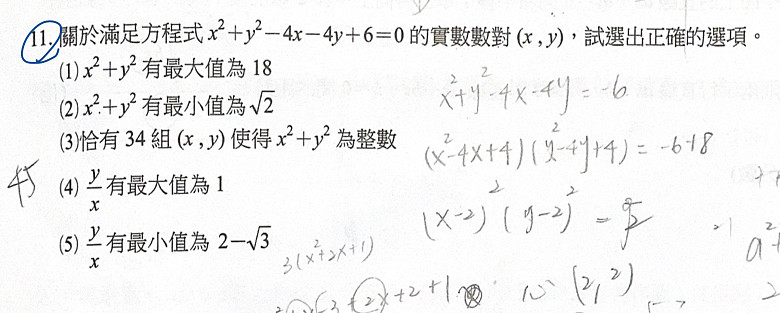 11. 關於滿足方程式 x²+y²−4x−4y+6=0 的實數數對 (x , y)，試選出正確的選項。
(1) x²+y² 有最大值為 18
(2) x²+y² 有最小值為 √2
(3)恰有 34 組 (x , y) 使得 x²+y² 為整數
(4) y/x 有最大值為 1
(5) y/x 有最小值為 2−√3
x²+y²-4x-4y=-6
(x²-4x+4)(y²-4y+4)=-6+8
(x-2)²(y-2)²=
3(x²+2x+1)
(2,2)